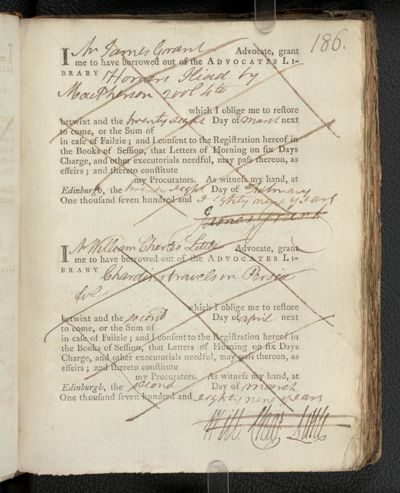 186.
I Mr James Grant Advocate, grant
me to have borrowed out of the ADVOCATES LI-
BRARY Homers Iliad by
MacPherson 2 vol 4to
which I oblige me to restore
betwixt and the twenty eight Day of March next
to come, or the Sum of
in case of Failzie; and I consent to the Registration hereof in
the Books of Session, that Letters of Horning on six Days
Charge, and other executorials needful, may pass thereon, as
effeirs; and thereto constitute
my Procurators. As witness my hand, at
Edinburgh, the twenty eight Day of February
One thousand seven hundred and eighty nine years
James Grant
I Mr William Charles Little Advocate, grant
me to have borrowed out of the ADVOCATES LI-
BRARY Chardins travels in Persia
which I oblige me to restore
betwixt and the second Day of April next
to come, or the Sum of
in case of Failzie; and I consent to the Registration hereof in
the Books of Session, that Letters of Horning on six Days
Charge, and other executorials needful, may pass thereon, as
effeirs; and thereto constitute
my Procurators. As witness my hand, at
Edinburgh, the second Day of March
One thousand seven hundred and eighty nine years
Will Chas Little